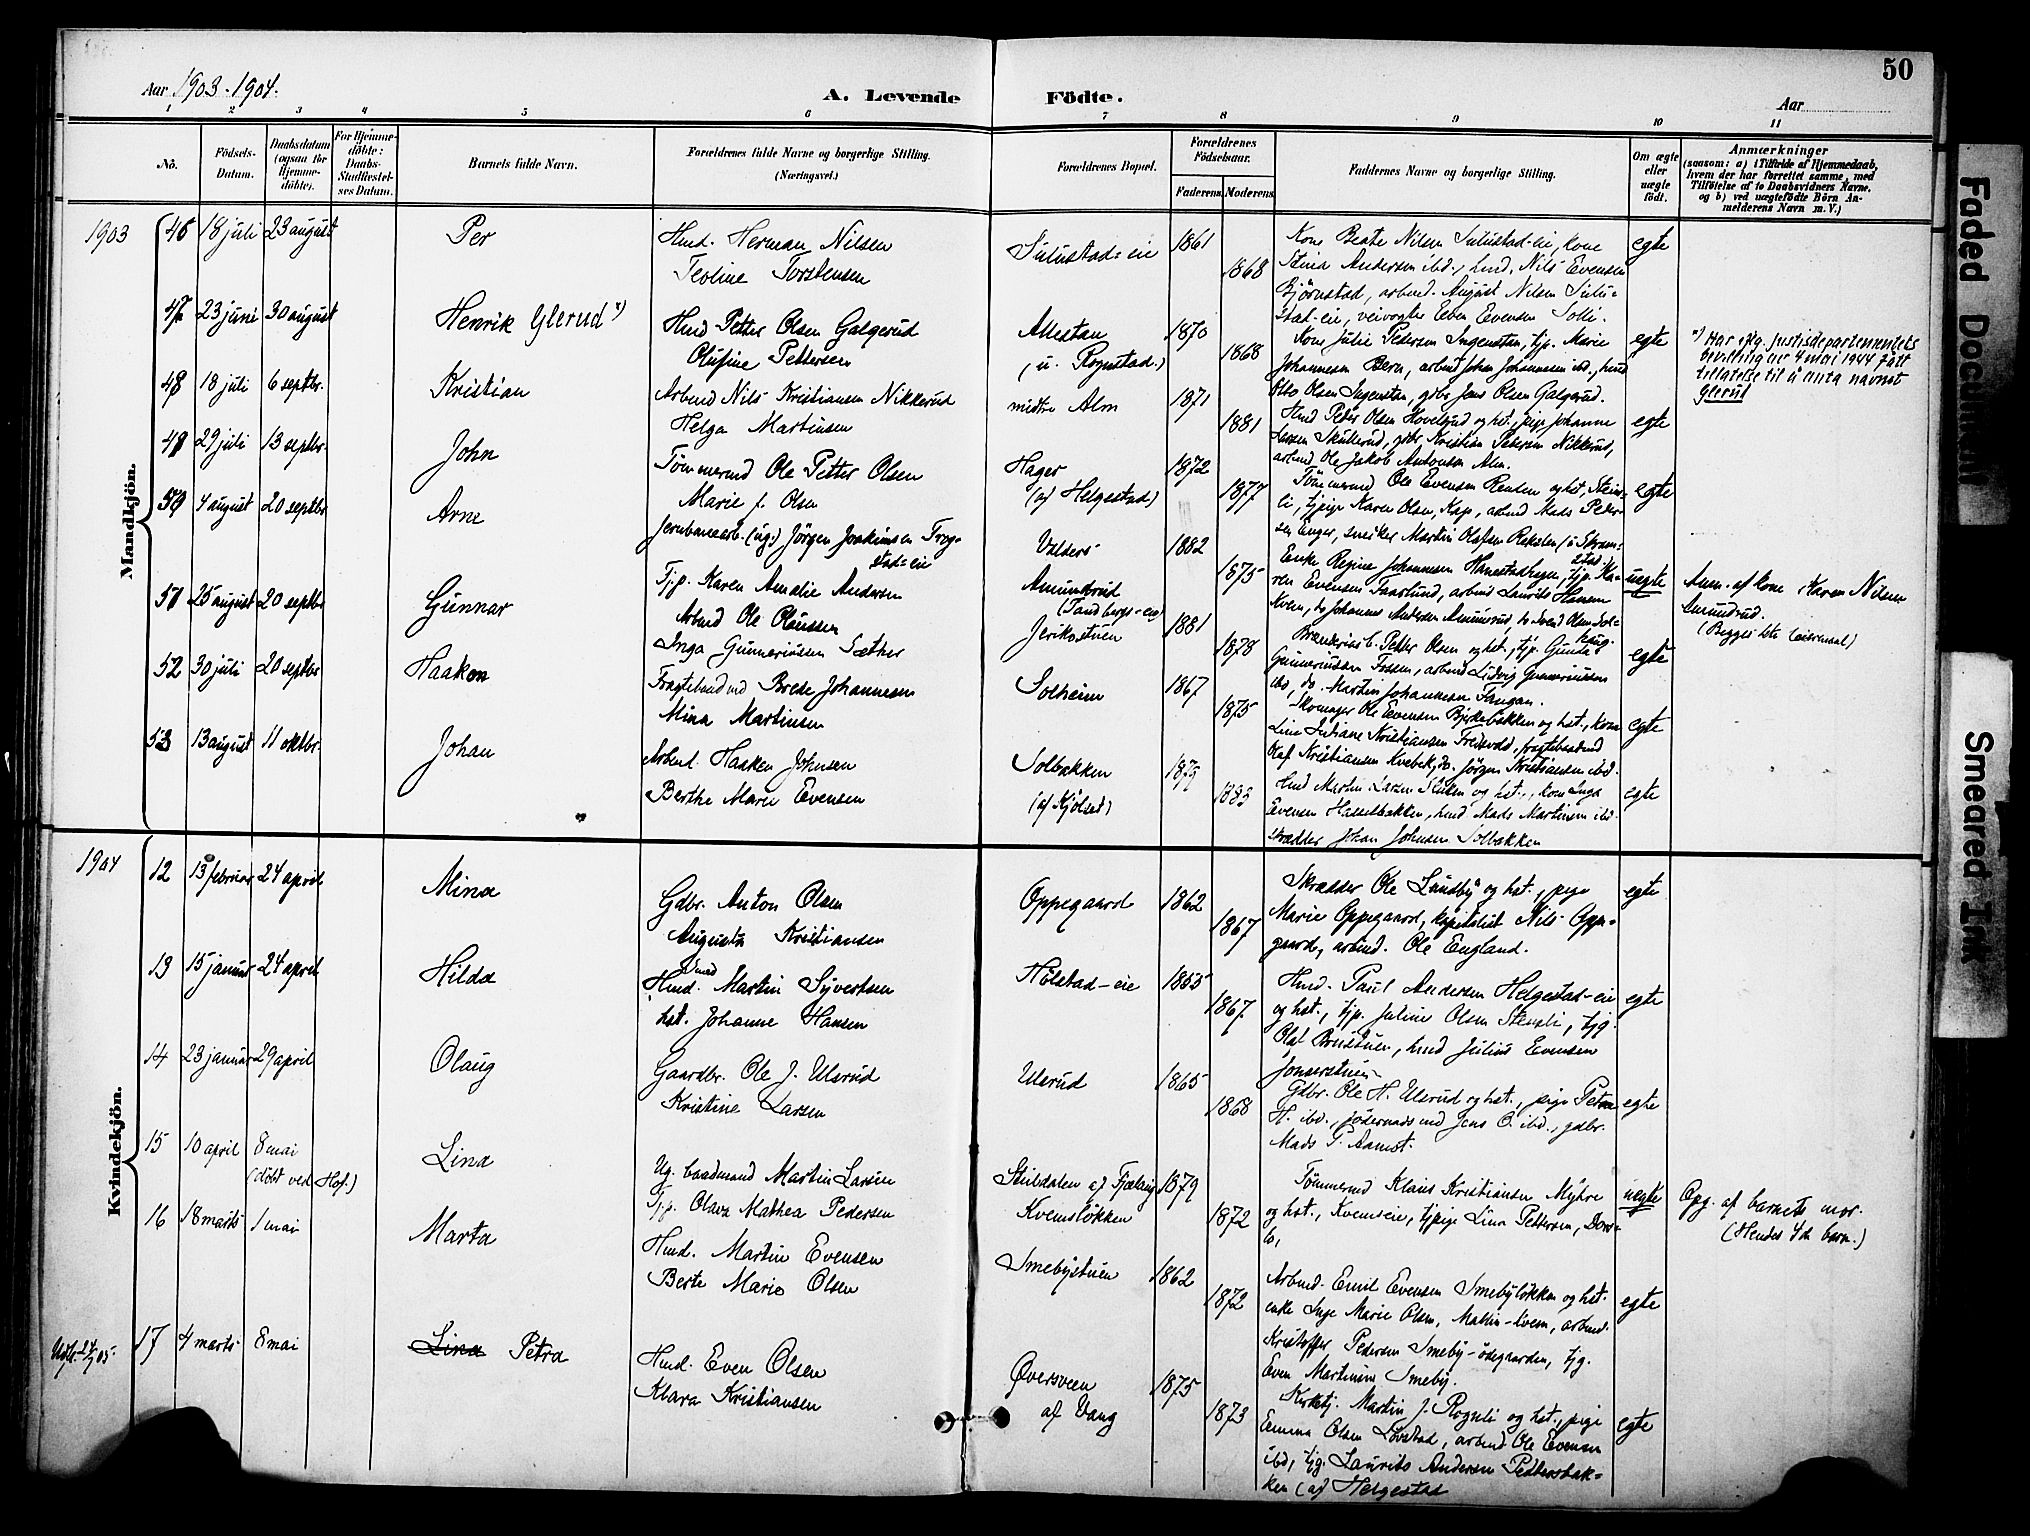 50
Aar 1903-1904.
A. Levende Födte.
Aar
1 2 3 4 5 6 7 8 9 10 11
No.
Födsels-Datum.
Daabsdatum (ogsaa for Hjemmedöbte).
For Hjemmedöbte: Daabs-Stadfæstelses Datum.
Barnets fulde Navn.
Forældrenes fulde Navne og borgerlige Stilling. (Næringsvei.)
Forældrenes Bopæl.
Forældrenes Födselsaar.
Faderens. Moderens.
Faddernes Navne og borgerlige Stilling.
Om ægte eller uægte födt.
Anmærkninger
(saasom: a) i Tilfælde af Hjemmedaab, hvem der har forrettet samme, med Tilföielse af to Daabsvidners Navne, og b) ved uægtefödte Börn Anmelderens Navn m. V.)
Mandkjön.
1903 46 18 juli 23 august Per
Hmd. Herman Nilsen
Teoline Torstensen
Sulustad-eie 1861 1868
Kone Beate Nilsen Sulustad-eie, kone
Stina Andersen ibd., hmd. Nils Evensen
Bjørnstad, arbmd. August Nilsen Sulu-
stad-eie, veivogter Even Evensen Solli.
egte
47 23 juni 30 august Henrik Glerud x)
Hmd Petter Olsen Galgerud
Olufine Pettersen
Allestau (u. Rognstad) 1870 1868
Kone Julie Pedersen Ingensten, tjp. Marie
Johannesen Bern, arbmd Johan Johannesen ibd., hmd
Otto Olsen Ingensten, gdbr Jens Olsen Galgerud.
egte
x) Har iflg. Justisdepartementets
bevilling av 4 mai 1944 fått
tillatelse til å anta navnet
Glerud
48 18 juli 6 septbr. Kristian
Arbmd Nils Kristiansen Nikkerud
Helga Martinsen
midtre Alm 1871 1881
Hmd Peter Olsen Hovelsrud og hst., pige Johanne
Larsen Skullerud, gdbr Kristian Petersen Nikkerud,
arbmd Ole Jakob Antonsen Alm.
egte
49 29 juli 13 septbr. John
Tömmermd Ole Petter Olsen
Marie f. Olsen
Hager (af Helgestad) 1872 1877
Tömmermd Ole Evensen Renden og hst., Steins-
li, tjpige Karen Olsen, Kap, arbmd Mads Peter-
sen Enger, snekker Martin Olafsen
egte
50 4 august 20 septbr Arne
Jernbanearb. (ug.) Jörgen Joakimsen Frog-
stad-eie
Tj.p. Karen Amalie Andersen
Valders 1882
Amundrud (Sandbergs-eie) 1875
Enke Regine Johannesen tjp. Ka-
ren Evensen Faarlund, arbmd Laurits Hansen
Kvern, do Johannes Andersen Amundrud, do Svend Olsen Sol-
haug.
uegte
Anm. af kone Karen Nilsen
Amundrud.
(Begges 1ste leiermaal)
51 25 august 20 septbr Gunnar
Arbmd Ole Olaussen
Inga Gunneriussen Sæther
Jerikostuen 1881 1878
Petter Olsen og hst., tjp. Gunda
Gunneriussen Fossen, arbmd Ludvig Gunneriussen
ibd, do. Martin Johannesen Fangan.
egte
52 30 juli 20 septbr Haakon
Fragtebundmd Brede Johannesen
Mina Martinsen
Solheim 1867 1875
Skomager Ole Evensen Bjerkebakken og hst., kone
Lina Juliane Kristiansen Fredsvold, fragtebudmd
Olaf Kristiansen Kvebek, do. Jörgen Kristiansen ibd.
egte
53 13 august 11 oktbr. Johan
Arbmd. Haaken Johnsen
Berthe Marie Evensen
Solbakken (af Kjölset) 1879 1883
Hmd Martin Larsen Sluken og hst., kone Inga
Evensen Hasselbakken, hmd Mads Martinsen ibd.
skrædder Johan Johnsen Solbakken
egte
Kvindekjön.
1904 12 13 februar 24 april Mina
Gdbr. Anton Olsen
Augusta Kristiansen
Oppegaard 1862 1867
Skrædder Ole Lundby og hst., pige
Marie Oppegaard, kapitalist Nils Oppe-
gaard, arbmd. Ole England.
egte
13 15 januar 24 april Hilda
Hmd. Martin Syvertsen
hst. Johanne Hansen
Hölstad-eie 1855 1867
Hmd. Paul Andersen Helgestad-eie
og hst., tjp. Juline Olsen Stensli, tjg.
Olaf Brustuen, hmd Julius Evensen
Jonserstuen
egte
14 23 januar 29 april Olaug
Gaardbr. Ole J. Ulsrud
Kristine Larsen
Ulsrud 1865 1868
Gdbr. Ole H. Ulsrud og hst., pige Petra
H. ibd., jödernads md Jens O. ibd., gdbr.
Mads P. Aamot.
egte
15 10 april 8 mai (döbt ved Hof.) Lina
Ug. baadmand Martin Larsen
Tj.p. Olava Mathea Pedersen
Stulsdalen af Fjælling 1879
Kvemslökken 1872
Tömmermd Klaus Kristiansen Myhre
og hst., Kvemseie, tjpige Lina Pettersen,
uegte
Opg. af barnets mor.
(Hendes 4de barn.)
16 18 marts 1 mai Marta
Hmd. Martin Evensen
Berte Marie Olsen
Smebystuen 1862 1872
Arbmd. Emil Evensen Smebylökken og hst.
enke Inge Marie Olsen, arbmd.
Kristoffer Pedersen Smeby-ödegaarden, tjg.
Even Martinsen Smeby.
egte
17 4 marts 8 mai Lina Petra
Hmd. Even Olsen
Klara Kristiansen
Øversveen af Vang 1875 1873
Kirketj. Martin J. Rognli og hst., pige
Emma Olsen Lovstad, arbmd Ole Evensen
ibd, tjg. Laurits Andersen Pettersbak-
ken (af Helgestad
egte
Faded Document
Smeared Ink